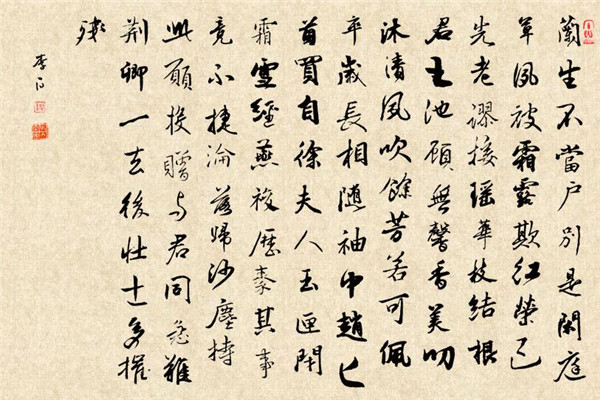 蘭生不當户别是閑庭
草夙被霜露欺紅榮已
先老謬接瑶華枝結根
君王池顧無馨香美叨
沐清風吹餘芳若可佩
卒歲長相隨袖中趙匕
首買自徐夫人玉匣閉
霜雪經燕複歷秦其事
竟不捷淪落歸沙塵持
此願投贈与君同急難
荆卿一去後壮士多摧
殘